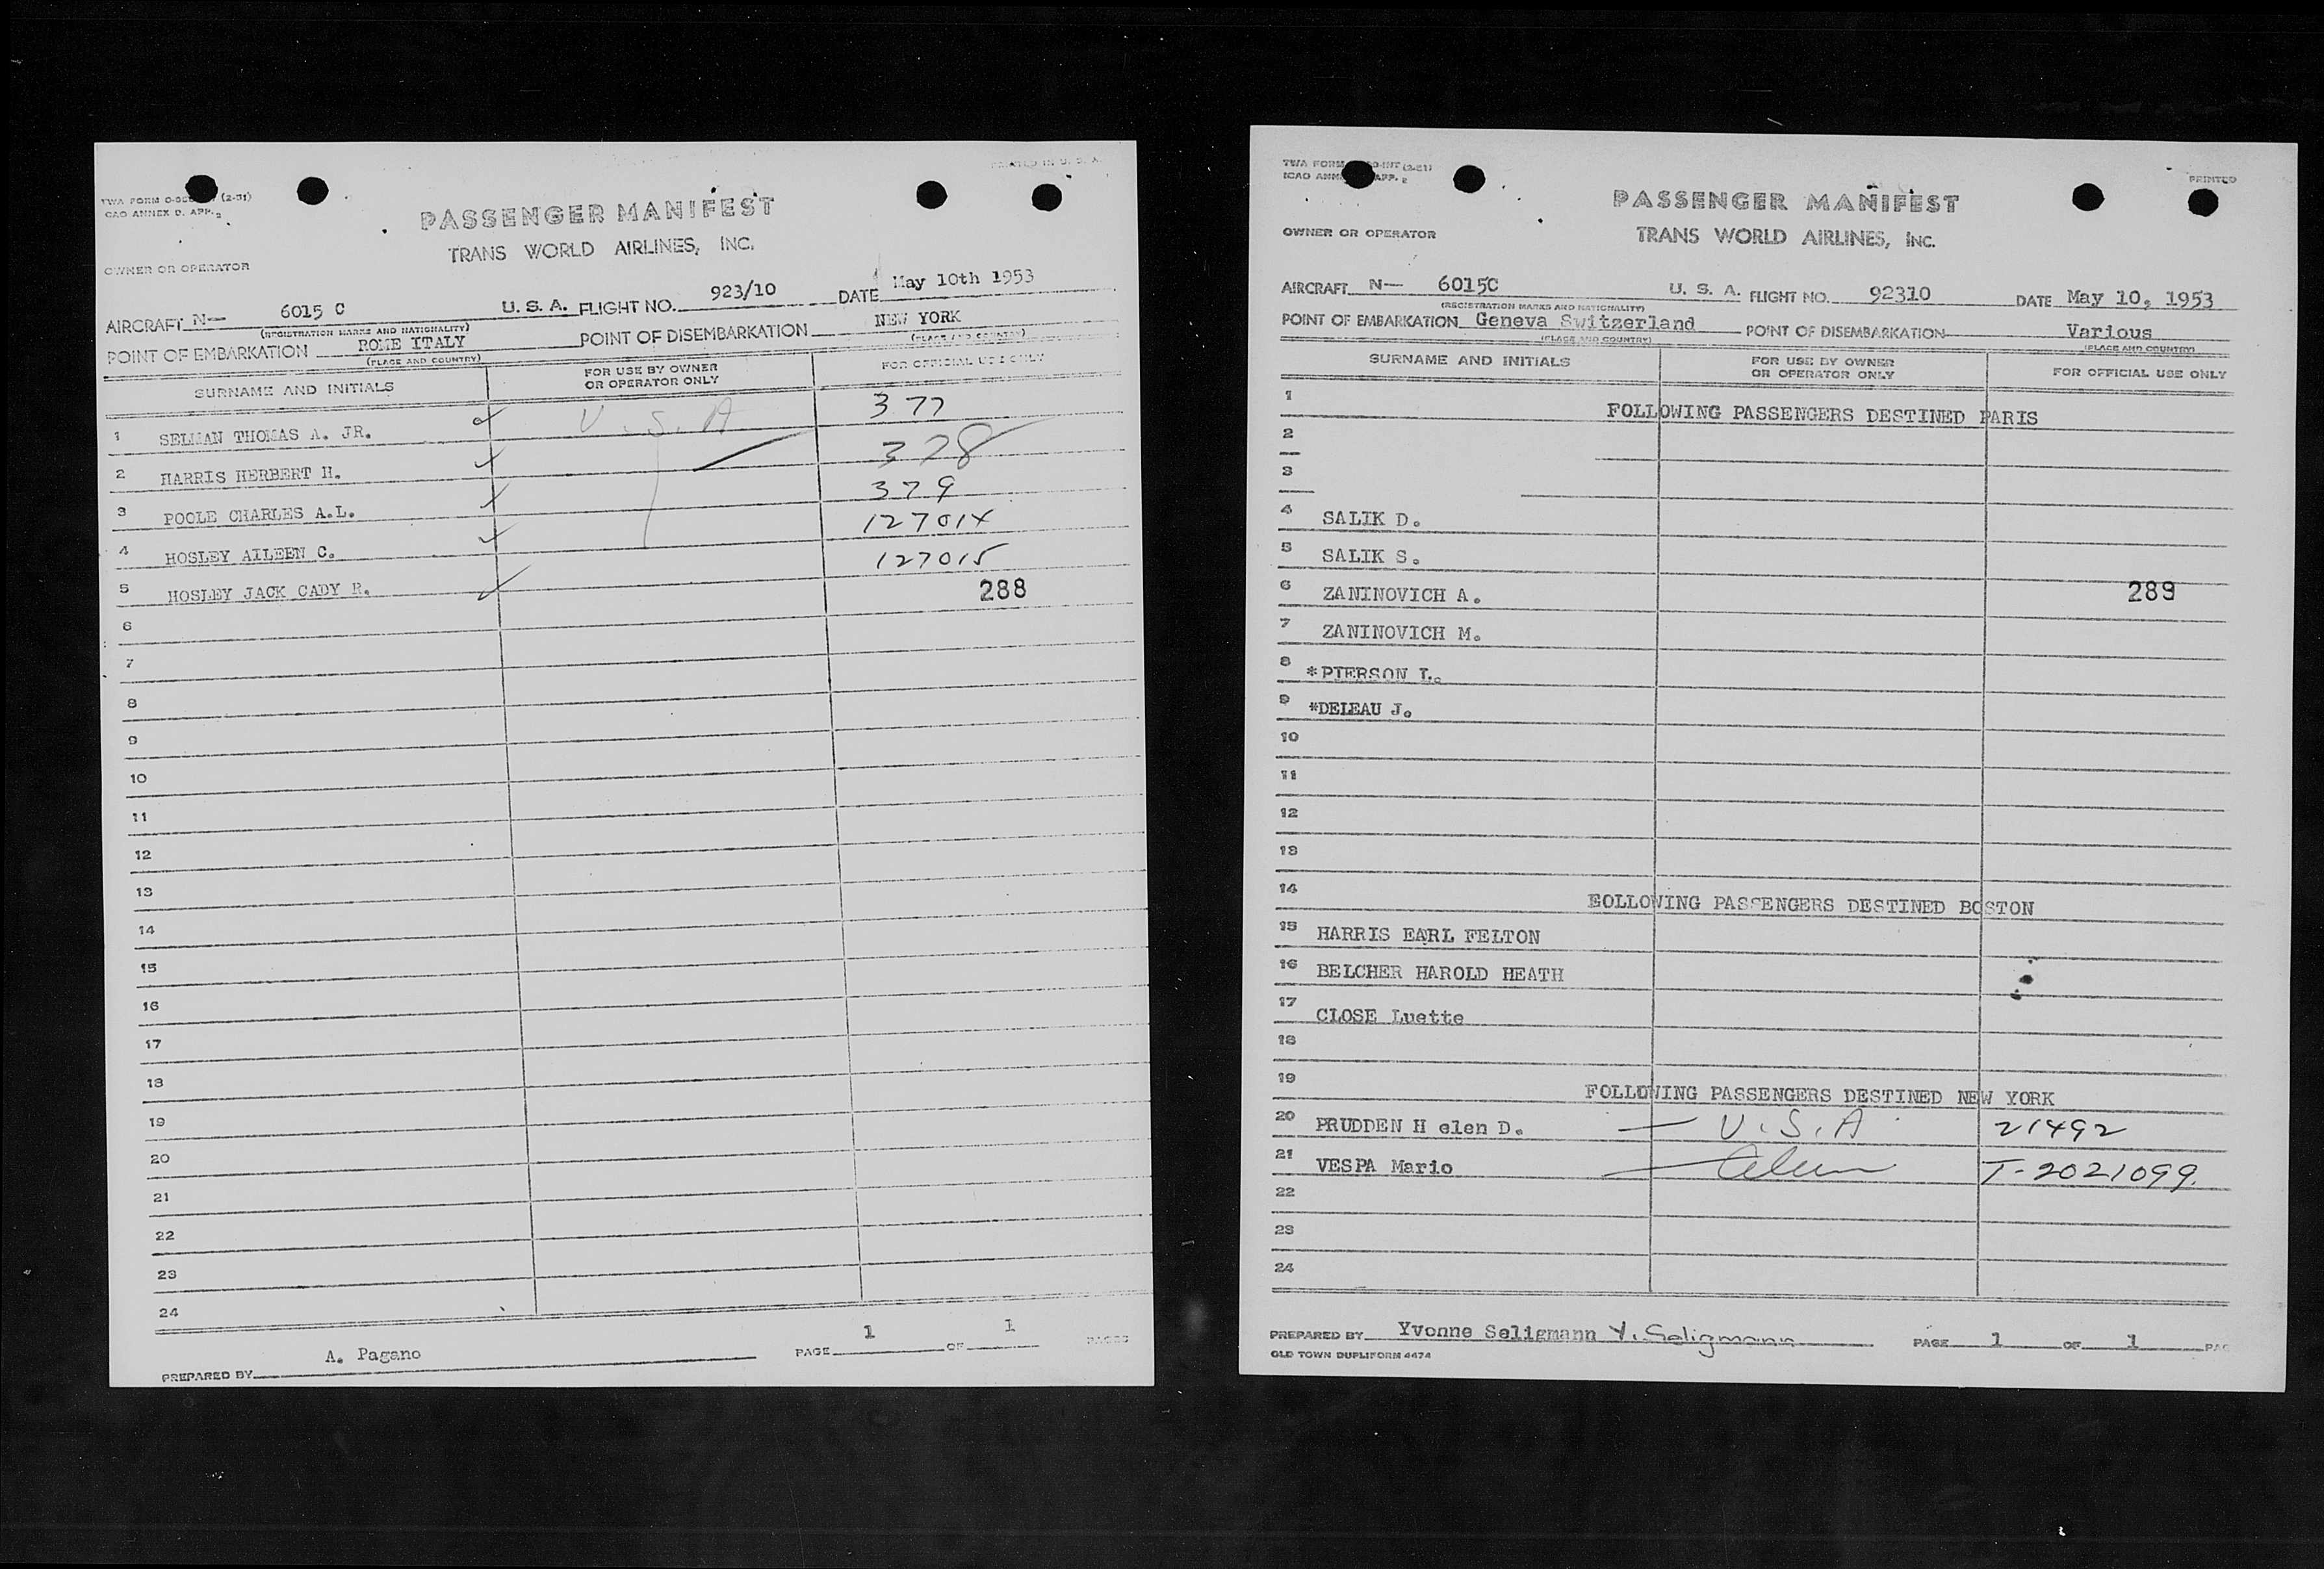 PRINTED IN U. S. A.
TWA FORM (2-51)
ICAO ANNEX 9, APP. 2
PASSENGER MANIFEST
TRANS WORLD AIRLINES, INC.
OWNER OR OPERATOR
AIRCRAFT N— 6015 C U. S. A. FLIGHT NO. 923/10 DATE May 10th 1953
(REGISTRATION MARKS AND NATIONALITY)
POINT OF EMBARKATION ROME ITALY POINT OF DISEMBARKATION NEW YORK
(PLACE AND COUNTRY) (PLACE AND COUNTRY)
SURNAME AND INITIALS FOR USE BY OWNER OR OPERATOR ONLY FOR OFFICIAL USE ONLY
1 SELMAN THOMAS A. JR. U.S.A 377
2 HARRIS HERBERT H. 378
3 POOLE CHARLES A.L. 379
4 HOSLEY AILEEN C. 127014
5 HOSLEY JACK CADY R. 127015
288
6
7
8
9
10
11
12
13
14
15
16
17
18
19
20
21
22
23
24
PREPARED BY A. Pagano PAGE 1 OF 1 PAGES
TWA FORM (2-51)
ICAO ANNEX APP. 2
PRINTED
PASSENGER MANIFEST
TRANS WORLD AIRLINES, INC.
OWNER OR OPERATOR
AIRCRAFT N— 6015C U. S. A. FLIGHT NO. 92310 DATE May 10, 1953
(REGISTRATION MARKS AND NATIONALITY)
POINT OF EMBARKATION Geneva Switzerland POINT OF DISEMBARKATION Various
(PLACE AND COUNTRY) (PLACE AND COUNTRY)
SURNAME AND INITIALS FOR USE BY OWNER OR OPERATOR ONLY FOR OFFICIAL USE ONLY
1 FOLLOWING PASSENGERS DESTINED PARIS
2
3
4 SALIK D.
5 SALIK S.
6 ZANINOVICH A. 289
7 ZANINOVICH M.
8 *PIERSON L.
9 *DELEAU J.
10
11
12
13
14 FOLLOWING PASSENGERS DESTINED BOSTON
15 HARRIS EARL FELTON
16 BELCHER HAROLD HEATH
17 CLOSE Luette
18
19 FOLLOWING PASSENGERS DESTINED NEW YORK
20 PRUDDEN H elen D. — U.S.A 21492
21 VESPA Mario — Alien T-2021099.
22
23
24
PREPARED BY Yvonne Seligmann Y. Seligmann PAGE 1 OF 1 PAG
OLD TOWN DUPLIFORM 4474